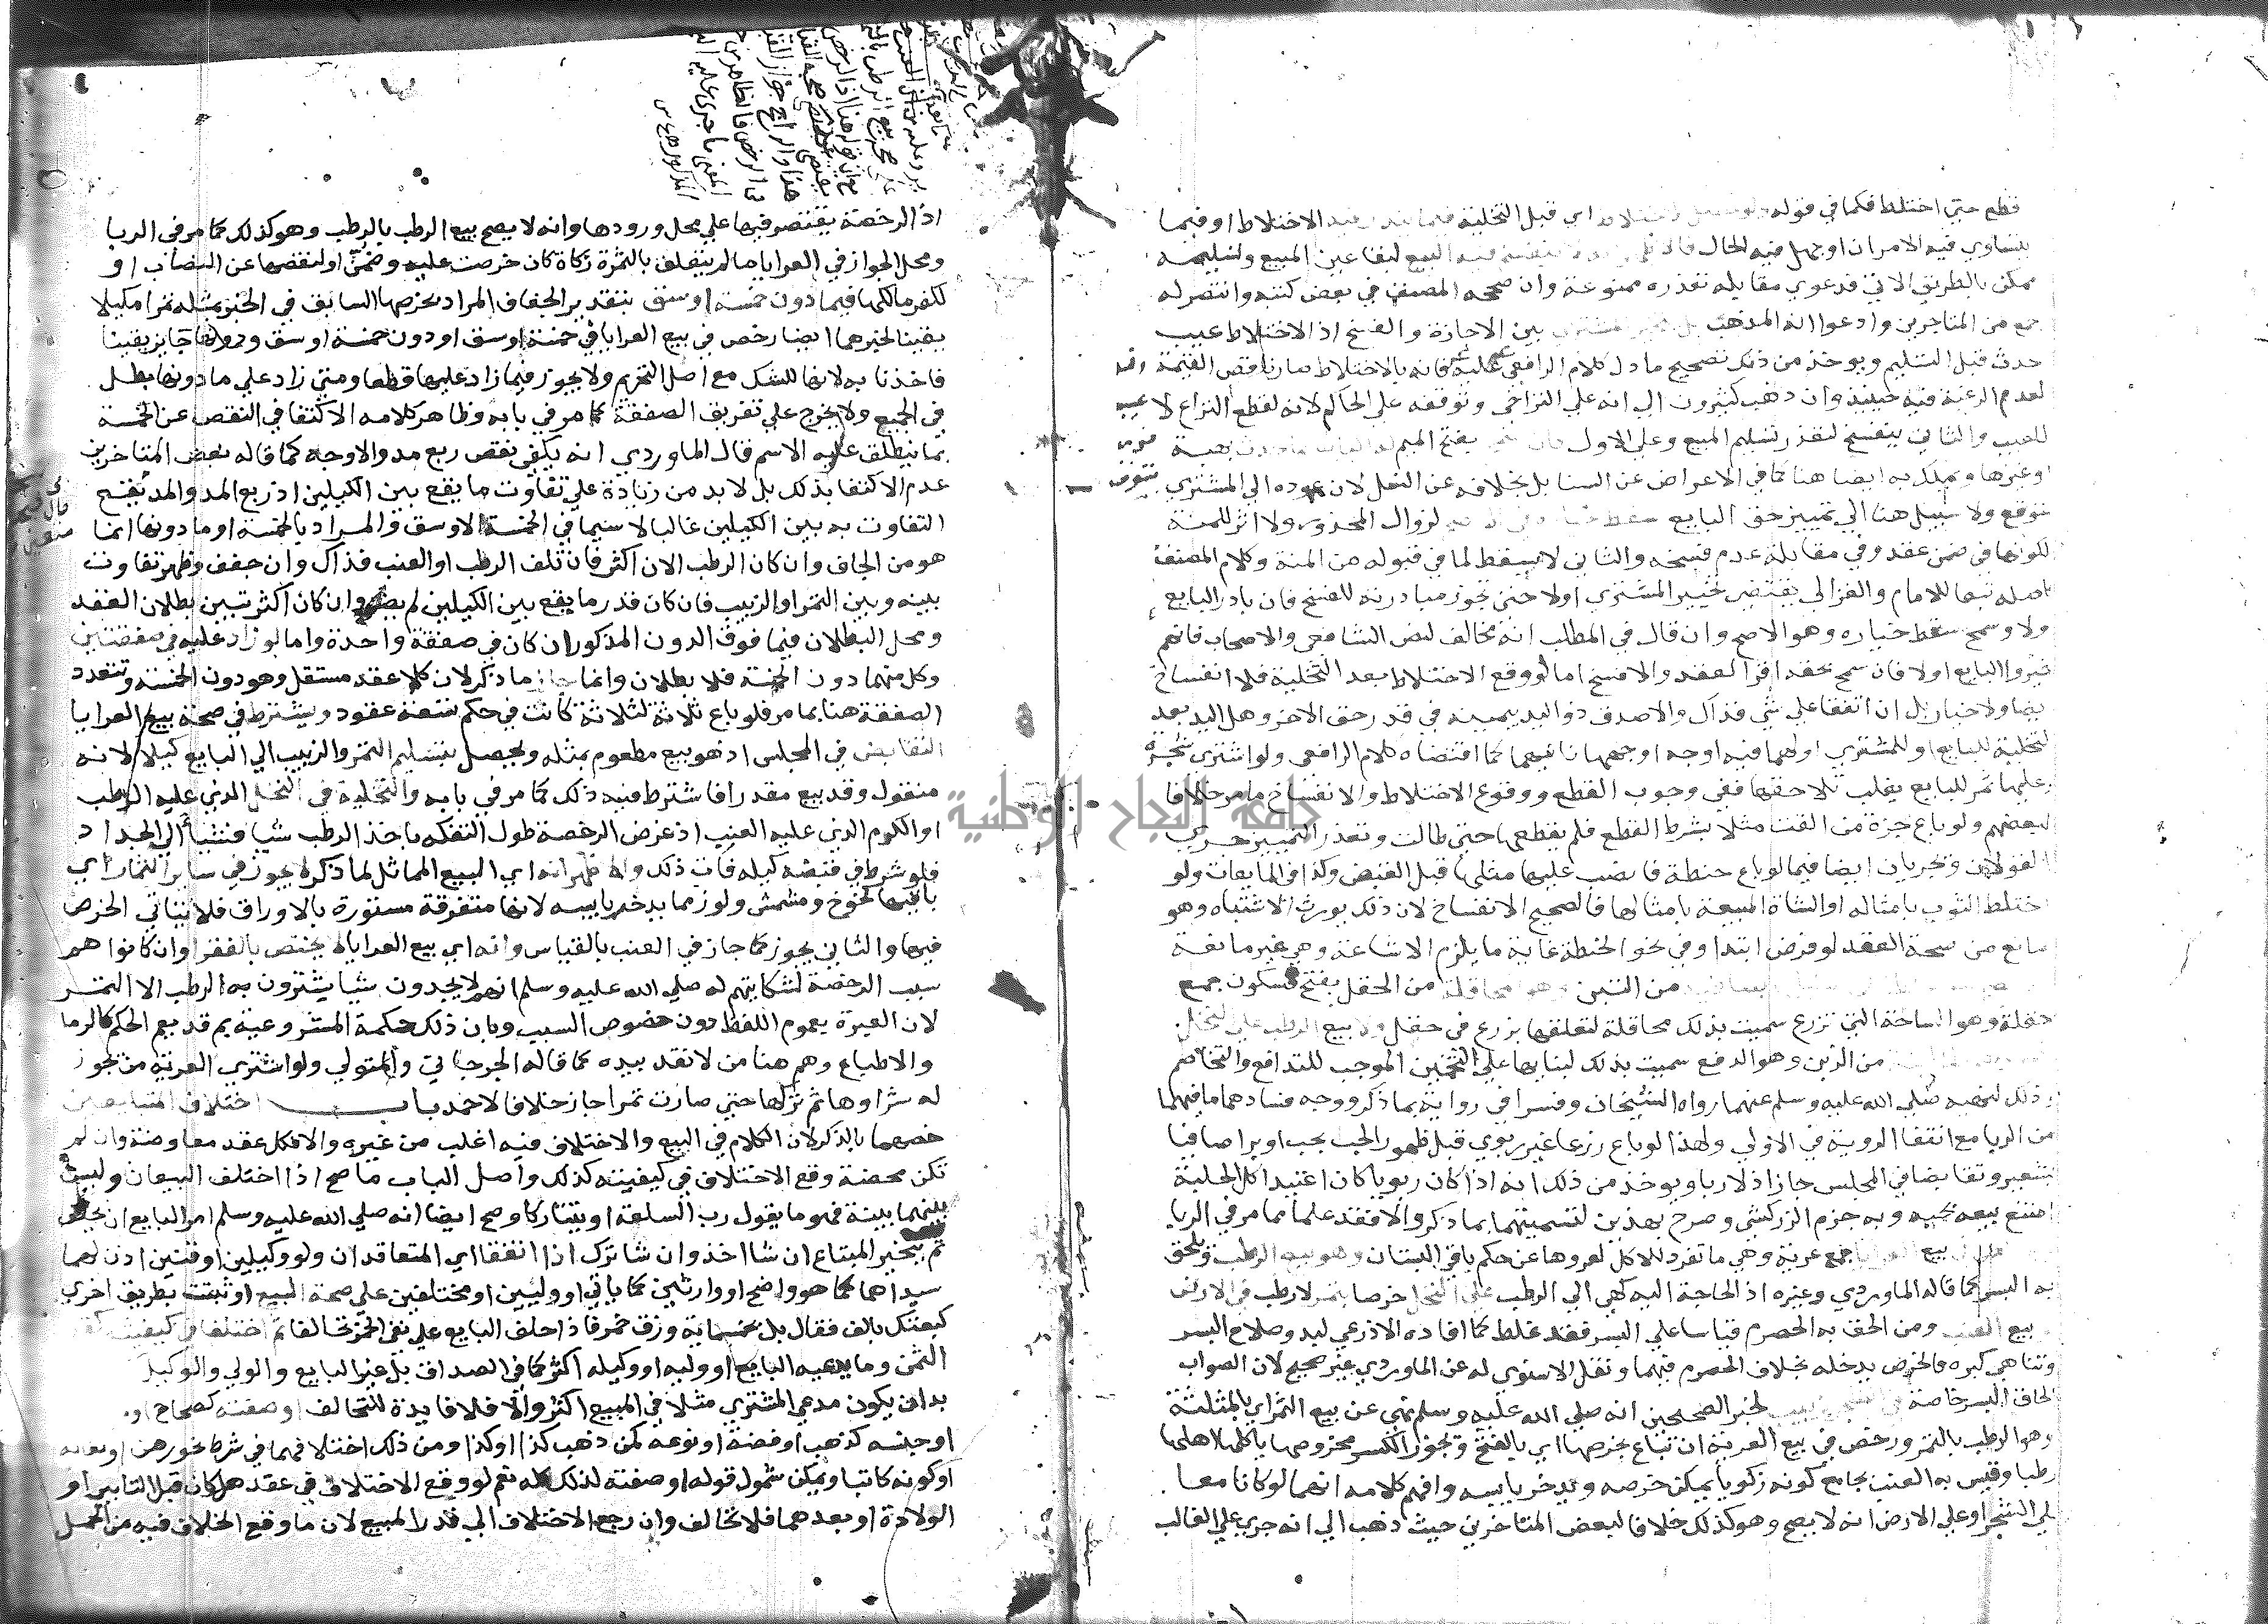 قطع حتي اختلط فكما في قوله ولو حصل الاختلاط اي قبل التخلية فيما يندر فيه الاختلاط او فيما
يتساوي فيه الامران او جهل فيه الحال فالاظهر انه لا ينفسخ فيه البيع لبقا عين المبيع وتسليمه
ممكن بالطريق الاتي فدعوي مقابله تعذره ممنوعة وان صححه المصنف في بعض كتبه وانتصر له
جمع من المتاخرين وادعوا انه المذهب بل يخير المشتري بين الاجازة والفسخ اذ الاختلاط عيب
حدث قبل التسليم ويوخذ من ذلك تصحيح ما دل كلام الرافعي عليه فانه بالاختلاط صار ناقص القيمة
لعدم الرغبة فيه حينيذ وان ذهب كثيرون الي انه علي التراخي وتوقفه علي الحاكم لانه لقطع النزاع لا
للعيب والثاني ينفسخ لتعذر تسليم المبيع وعلي الاول فان سمح بفتح الميم له البايع بما حدث بهبة
او غيرها ويملك به ايضا هنا كما في الاعراض عن السنابل بخلافه عن النعل لان عوده الي المشتري
متوقع ولا سبيل هنا الي تمييز حق البايع سقط خياره في الاصح لزوال المحذور ولا اثر للمنة
لكونها في ضمن عقد وفي مقابلة عدم فسخه والثاني لا يسقط لما في قبوله من المنة وكلام المصنف
كاصله تبعا للامام والغزالي يقتضي تخيير المشتري اولا حتي تجوز مبادرته للفسخ فان بادر البايع
ولا وسمح سقط خياره وهو الاصح وان قال في المطلب انه مخالف لنص الشافعي والاصحاب فانهم
خيروا البايع اولا فان سمح بحقه اقر العقد والا فسخ اما لو وقع الاختلاط بعد التخلية فلا انفساخ
ايضا ولا خيار بل ان اتفقا علي شي فذاك والا صدق ذو اليد بيمينه في قدر حق الاخر وهل اليد بعد
التخلية للبايع او للمشتري او لهما فيه اوجه اوجهها ثانيهما كما اقتضاه كلام الرافعي ولو اشتري شجرة
وعليها ثمر للبايع يغلب تلاحقها ففي وجوب القطع ووقوع الاختلاط والانفساخ ما مر خلافا
لبعضهم ولو باع جزة من القت مثلا بشرط القطع فلم يقطعها حتي طالت وتعذر التمييز جري
القولان ويجريان ايضا فيما لو باع حنطة فانصب عليها مثلها قبل القبض وكذا في المايعات ولو
اختلط الثوب بامثاله او الشاة المبيعة بامثالها فالصحيح الانفساخ لان ذلك يورث الاشتباه وهو
مانع من صحة العقد لو فرض ابتدا وفي نحو الحنطة غاية ما يلزم الاشاعة وهي غير مانعة
من التبن وهو المحاقلة من الحقل بفتح فسكون جمع
حقلة وهو الساحة التي تزرع سميت بذلك محاقلة لتعلقها بزرع في حقل ولا بيع الرطب علي النخل
من الزبن وهو الدفع سميت بذلك لبنايها علي التخمين الموجب للتدافع والتخاصم
وذلك لنهيه صلي الله عليه وسلم عنهما رواه الشيخان وفسرا في رواية بما ذكر ووجه فسادهما ما فيهما
من الربا مع انتفا الروية في الاولي ولهذا لو باع زرعا غير ربوي قبل ظهور الحب بحب او برا صافيا
بشعير وتقابضا في المجلس جاز اذ لا ربا ويوخذ من ذلك انه اذا كان ربويا كان اعتيد اكل الحلبة
امتنع بيعه بحبه وبه جزم الزركشي وصرح بهذين لتسميتهما بما ذكر والا فقد علما مما مر في الربا
بيع العرايا جمع عرية وهي ما تفرد للاكل لعروها عن حكم باقي البستان وهو بيع الرطب ويلحق
به البسر كما قاله الماوردي وغيره اذ الحاجة اليه كهي الي الرطب علي النخل خرصا بتمر لا رطب في الارض
او بيع العنب ومن الحق به الحصرم قياسا علي البسر فقد غلط كما افاده الاذرعي لبدو صلاح البسر
وتناهي كبره فالخرص يدخله بخلاف الحصرم فيهما ونقل الاسنوي له عن الماوردي غير صحيح لان الصواب
الحاق البسر خاصة في الشجر بزبيب لخبر الصحيحين انه صلي الله عليه وسلم نهي عن بيع الثمر اي بالمثلثة
وهو الرطب بالتمر ورخص في بيع العرية ان تباع بخرصها اي بالفتح ويجوز الكسر مخروصها ياكلها اهلها
رطبا وقيس به العنب بجامع كونه زكويا يمكن خرصه ويدخر يابسه وافهم كلامه انهما لو كانا معا
علي الشجر او علي الارض انه لا يصح وهو كذلك خلافا لبعض المتاخرين حيث ذهب الي انه جري علي الغالب
اذ الرخصة يقتصر فيها علي محل ورودها وانه لا يصح بيع الرطب بالرطب وهو كذلك كما مر في الربا
ومحل الجواز في العرايا ما لم يتعلق بالثمرة زكاة كان خرصت عليه وضمن او لنقصها عن النصاب او
لكفر مالكها فيما دون خمسة اوسق بتقدير الجفاف المراد بخرصها السابق في الخبر بمثله تمرا مكيلا
يقينا لخبرهما ايضا رخص في بيع العرايا في خمسة اوسق او دون خمسة اوسق ودونها جايز يقينا
فاخذنا به لانها للشك مع اصل التحريم ولا يجوز فيما زاد عليها قطعا ومتي زاد علي ما دونها بطل
في الجميع ولا يخرج علي تفريق الصفقة كما مر في بابه وظاهر كلامه الاكتفا في النقص عن الخمسة
بما ينطلق عليه الاسم قال الماوردي انه يكفي نقص ربع مد والاوجه كما قاله بعض المتاخرين
عدم الاكتفا بذلك بل لا بد من زيادة علي تفاوت ما يقع بين الكيلين اذ ربع المد والمد يقع
التفاوت به بين الكيلين غالبا لا سيما في الخمسة الاوسق والمراد بالخمسة او ما دونها انما
هو من الجاف وان كان الرطب الان اكثر فان تلف الرطب او العنب فذاك وان جفف وظهر تفاوت
بينه وبين التمر او الزبيب فان كان قدر ما يقع بين الكيلين لم يضر وان كان اكثر تبين بطلان العقد
ومحل البطلان فيما فوق الدون المذكور ان كان في صفقة واحدة واما لو زاد عليه في صفقتين
وكل منهما دون الخمسة فلا بطلان وانما جاز ما ذكر لان كلا عقد مستقل وهو دون الخمسة وتتعدد
الصفقة هنا بما مر فلو باع ثلاثة لثلاثة كانت في حكم تسعة عقود ويشترط في صحة بيع العرايا
التقابض في المجلس اذ هو بيع مطعوم بمثله ويحصل بتسليم التمر والزبيب الي البايع كيلا لانه
منقول وقد بيع مقدرا فاشترط فيه ذلك كما مر في بابه والتخلية في النخل الذي عليه الرطب
او الكرم الذي عليه العنب اذ غرض الرخصة طول التفكه باخذ الرطب شيا فشيا الي الجداد
فلو شرط في قبضه كيله فات ذلك والاظهر انه اي البيع المماثل لما ذكر لا يجوز في ساير الثمار اي
باقيها كخوخ ومشمش ولوز مما يدخر يابسه لانها متفرقة مستورة بالاوراق فلا يتاتي الخرص
فيها والثاني يجوز كما جاز في العنب بالقياس وانه اي بيع العرايا لا يختص بالفقرا وان كانوا هم
سبب الرخصة لشكايتهم له صلي الله عليه وسلم انهم لا يجدون شيا يشترون به الرطب الا التمر
لان العبرة بعموم اللفظ دون خصوص السبب وبان ذلك حكمة المشروعية ثم قد يعم الحكم كالرمل
والاضطباع وهم هنا من لا نقد بيده كما قاله الجرجاني والمتولي ولو اشتري العرية من يجوز
له شراوها ثم تركها حتي صارت تمرا جاز خلافا لاحمد باب اختلاف المتبايعين
خصهما بالذكر لان الكلام في البيع والاختلاف فيه اغلب من غيره والا فكل عقد معاوضة وان لم
تكن محضة وقع الاختلاف في كيفيته كذلك واصل الباب ما صح اذا اختلف البيعان وليس
بينهما بينة فهو ما يقول رب السلعة او يتتاركا وصح ايضا انه صلي الله عليه وسلم امر البايع ان يحلف
ثم يتخير المبتاع ان شا اخذ وان شا ترك اذا اتفقا اي المتعاقدان ولو وكيلين او قنين اذن لهما
سيداهما كما هو واضح او وارثين كما ياتي او وليين او مختلفين علي صحة البيع او ثبتت بطريق اخري
كبعتك بالف فقال بل بخمسماية وزق خمر فاذا حلف البايع علي نفي الخمر تحالفا ثم اختلفا في كيفيته كقدر
الثمن وما يدعيه البايع او وليه او وكيله اكثر كما في الصداق بل غير البايع والولي والوكيل
بدان يكون مدعي المشتري مثلا في المبيع اكثر والا فلا فايدة للتحالف او صفته كصحاح او
او جنسه كذهب او فضة او نوعه كمن ذهب كذا او كذا ومن ذلك اختلافهما في شرط نحو رهن او كفالة
او كونه كاتبا ويمكن شمول قوله او صفته لذلك كله نعم لو وقع الاختلاف في عقد هل كان قبل التابير او
الولادة او بعدهما فلا تحالف وان رجع الاختلاف الي قدر المبيع لان ما وقع الخلاف فيه من الحمل
جامعة النجاح الوطنية